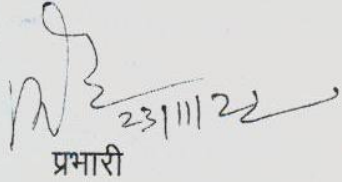 23/11/22
प्रभारी